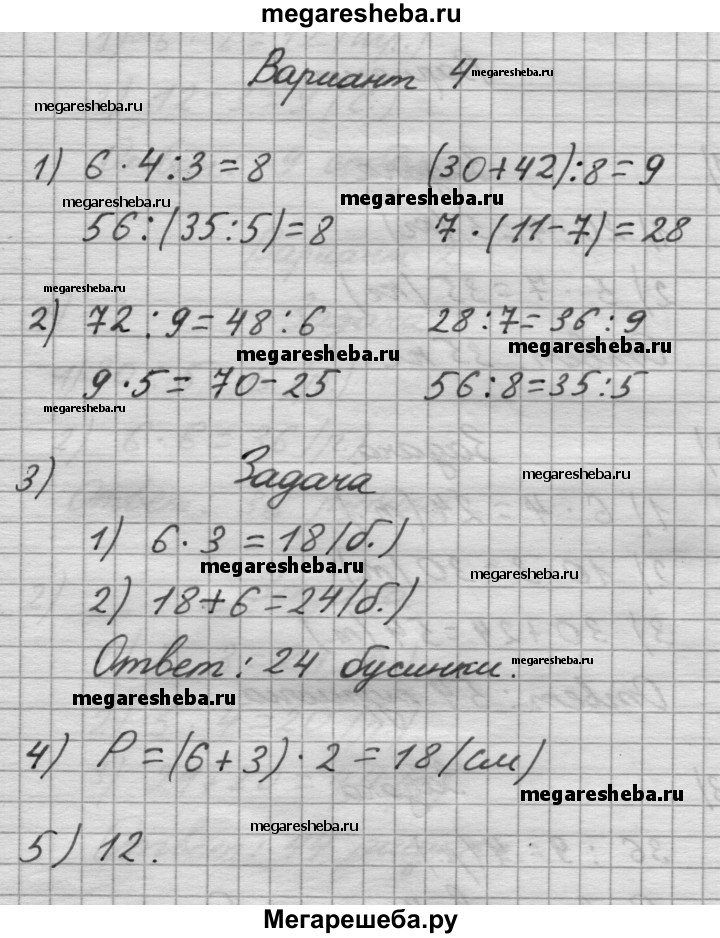 megaresheba.ru
Вариант 4 megaresheba.ru
megaresheba.ru
1) 6 · 4 : 3 = 8 (30+42) : 8 = 9
megaresheba.ru megaresheba.ru
56 : (35 : 5) = 8 7 · (11 - 7) = 28
megaresheba.ru
2) 72 : 9 = 48 : 6 28 : 7 = 36 : 9
megaresheba.ru megaresheba.ru
9 · 5 = 70 - 25 56 : 8 = 35 : 5
megaresheba.ru
3) Задача megaresheba.ru
1) 6 · 3 = 18 (б.)
megaresheba.ru megaresheba.ru
2) 18 + 6 = 24 (б.)
Ответ : 24 бусинки. megaresheba.ru
megaresheba.ru
4) P = (6 + 3) · 2 = 18 (см)
megaresheba.ru
megaresheba.ru
5) 12.
Мегарешеба.ру